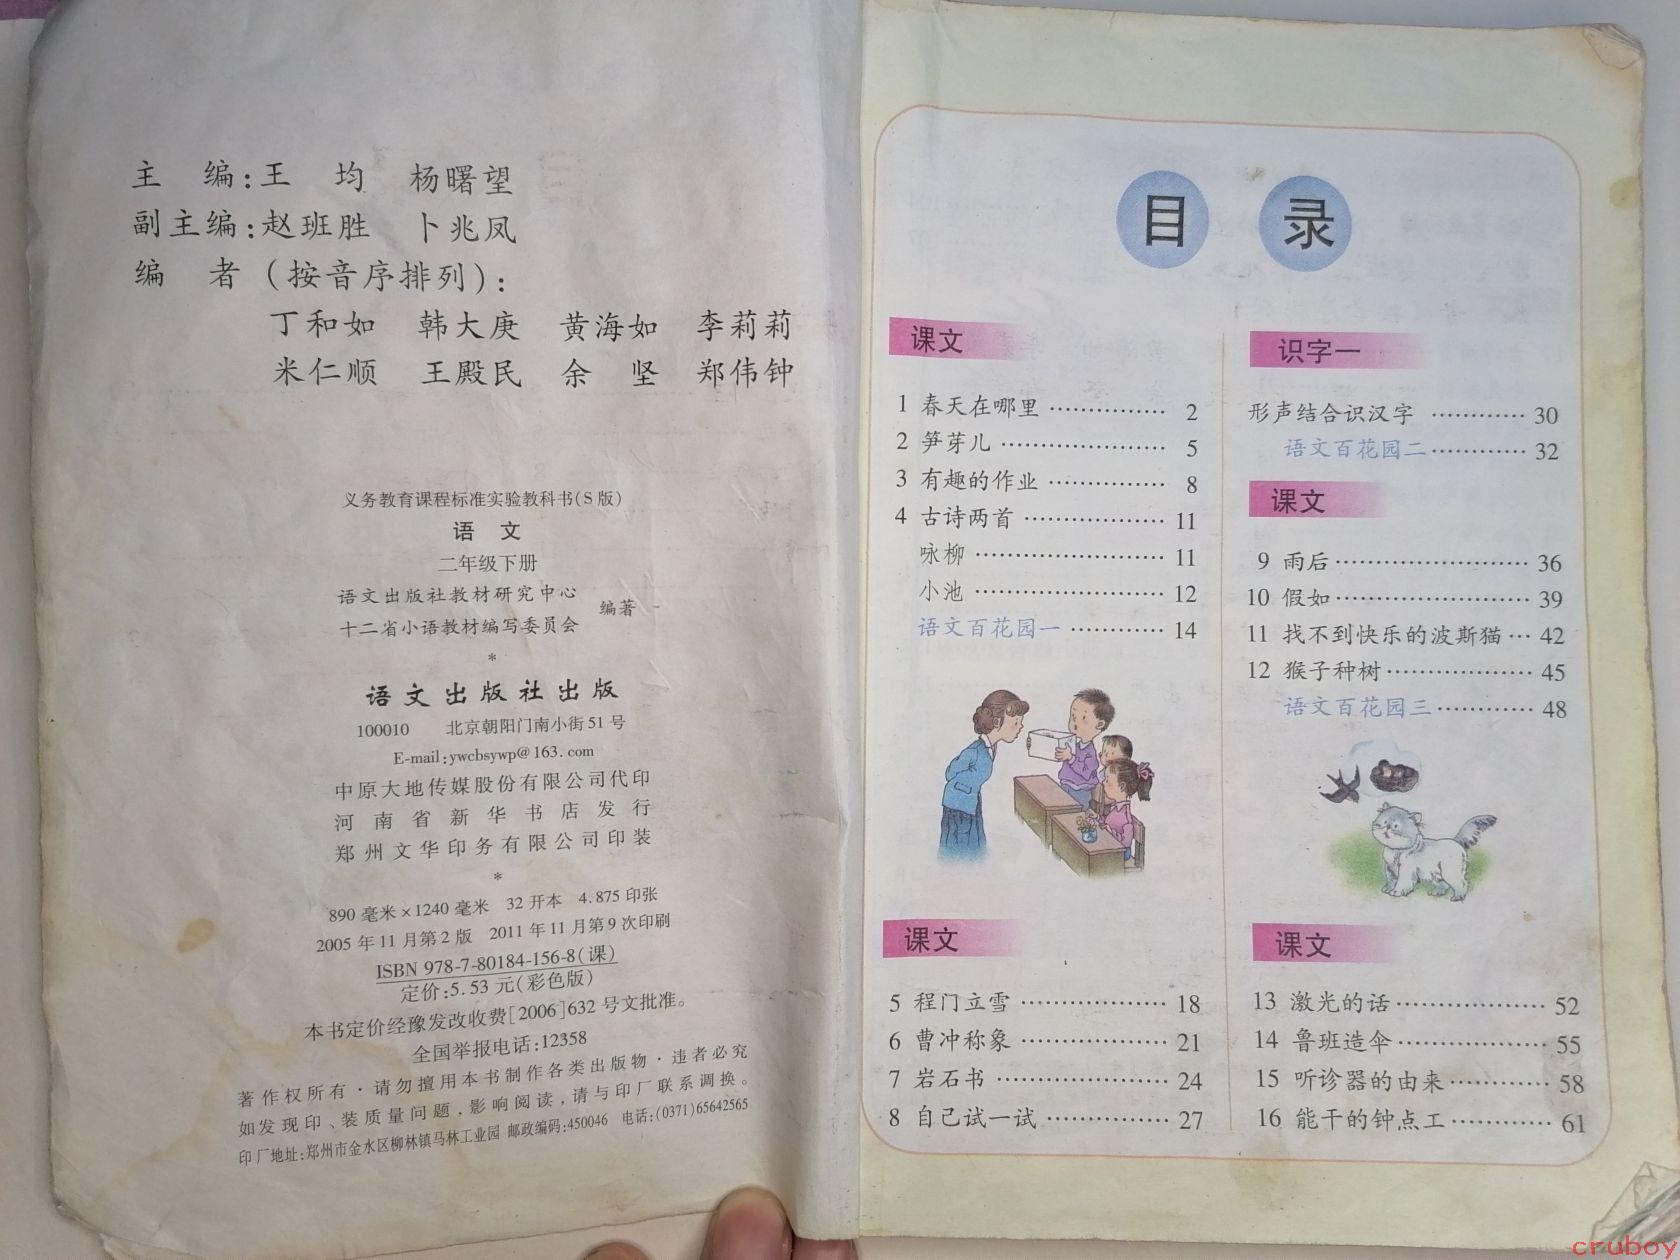 主 编:王 均 杨曙望
副主编:赵班胜 卜兆凤
编 者(按音序排列):
丁和如 韩大庚 黄海如 李莉莉
米仁顺 王殿民 余 坚 郑伟钟
义务教育课程标准实验教科书(S版)
语 文
二年级下册
语文出版社教材研究中心
十二省小语教材编写委员会
编著
*
语文出版社出版
100010 北京朝阳门南小街51号
E-mail:ywcbsywp@163.com
中原大地传媒股份有限公司代印
河南省新华书店发行
郑州文华印务有限公司印装
*
890毫米×1240毫米 32开本 4.875印张
2005年11月第2版 2011年11月第9次印刷
ISBN 978-7-80184-156-8(课)
定价:5.53元(彩色版)
本书定价经豫发改收费[2006]632号文批准。
全国举报电话:12358
著作权所有·请勿擅用本书制作各类出版物·违者必究
如发现印、装质量问题,影响阅读,请与印厂联系调换。
印厂地址:郑州市金水区柳林镇马林工业园 邮政编码:450046 电话:(0371)65642565
目 录
课文
1 春天在哪里 …………… 2
2 笋芽儿 …………… 5
3 有趣的作业 …………… 8
4 古诗两首 …………… 11
咏柳 …………… 11
小池 …………… 12
语文百花园一 ………… 14
课文
5 程门立雪 …………… 18
6 曹冲称象 …………… 21
7 岩石书 …………… 24
8 自己试一试 …………… 27
识字一
形声结合识汉字 ………… 30
语文百花园二 ………… 32
课文
9 雨后 …………… 36
10 假如 …………… 39
11 找不到快乐的波斯猫 … 42
12 猴子种树 …………… 45
语文百花园三 ………… 48
课文
13 激光的话 …………… 52
14 鲁班造伞 …………… 55
15 听诊器的由来 ………… 58
16 能干的钟点工 ………… 61
cruboy